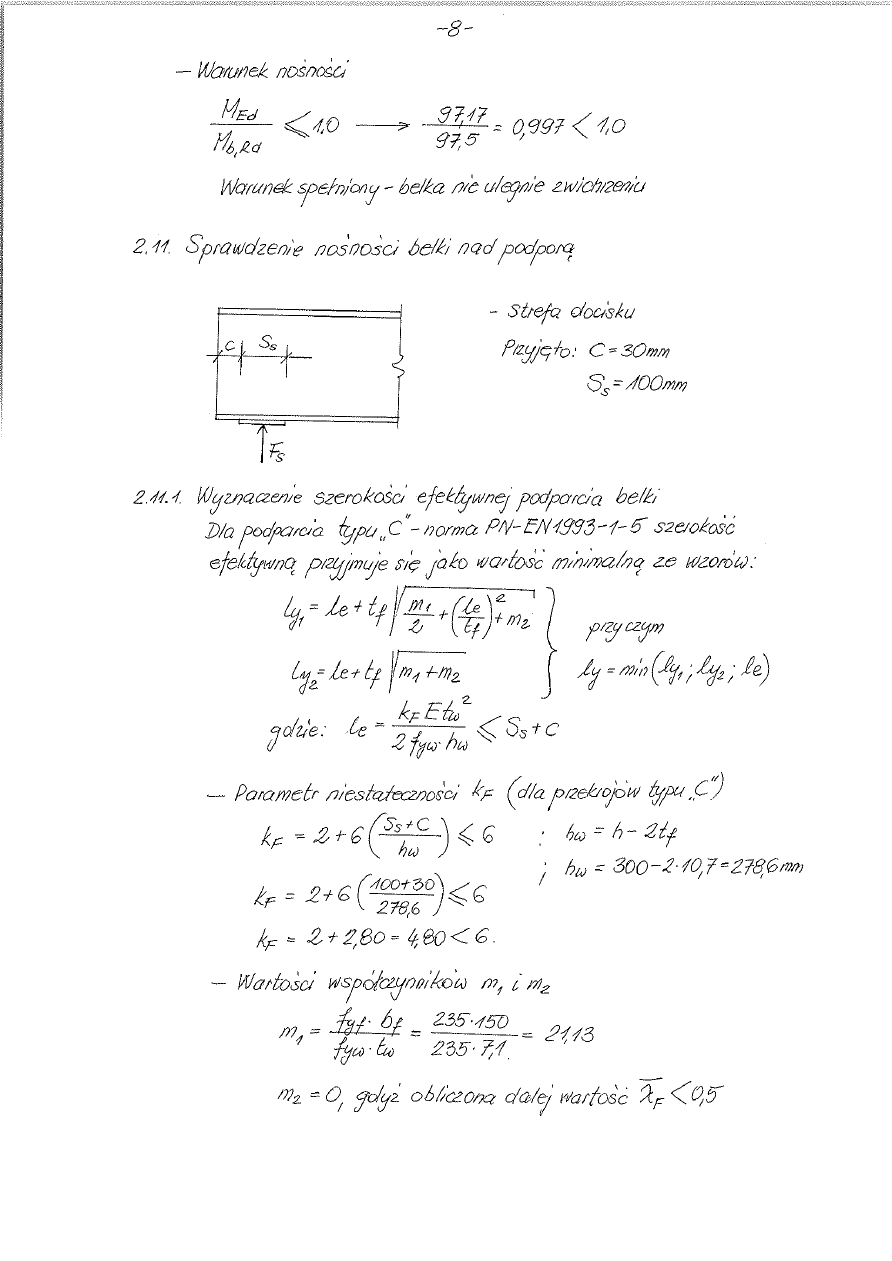 -8-
— Warunek nośności
M_Ed / M_b,Rd ⩽ 1.0 → 97,17 / 97,5 = 0,997 < 1,0
Warunek spełniony - belka nie ulegnie zwichrzeniu
2.11. Sprawdzenie nośności belki nad podporą
- Strefa docisku
Przyjęto: C = 30mm
S_s = 100mm
C S_s
F_s
2.11.1. Wyznaczenie szerokości efektywnej podparcia belki
Dla podparcia typu „C" - norma PN-EN 1993-1-5 szerokość
efektywną przyjmuje się jako wartość minimalną ze wzorów:
l_y1 = l_e + t_f √(m_1/2 + (l_e/t_f)^2 + m_2)
przy czym
l_y2 = l_e + t_f √(m_1 + m_2)
l_y = min(l_y1; l_y2; l_e)
gdzie: l_e = k_F E t_w^2 / 2 f_yw · h_w ⩽ S_s + C
— Parametr niestateczności k_F (dla przekrojów typu „C")
k_F = 2 + 6 (S_s + C / h_w) ⩽ 6 ; h_w = h - 2t_f
; h_w = 300 - 2 · 10,7 = 278,6mm
k_F = 2 + 6 (100+30 / 278,6) ⩽ 6
k_F = 2 + 2,80 = 4,80 < 6.
— Wartości współczynników m_1 i m_2
m_1 = f_yf · b_f / f_yw · t_w = 235 · 150 / 235 · 7,1 = 21,13
m_2 = 0, gdyż obliczona dalej wartość λ̄_F < 0,5